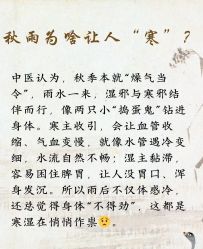 秋雨为啥让人“寒”?
中医认为，秋季本就“燥气当
令”，雨水一来，湿邪与寒邪结
伴而行，像两只小“捣蛋鬼”钻进
身体。寒主收引，会让血管收
缩、气血变慢，就像水管遇冷变
细，水流自然不畅；湿主黏滞，
容易困住脾胃，让人没胃口、浑
身发沉。所以雨后不仅体感冷，
还总觉得身体“不得劲”，这都是
寒湿在悄悄作祟😟。